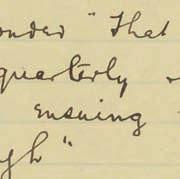 onder "That
quarterly
ensuing
gh"